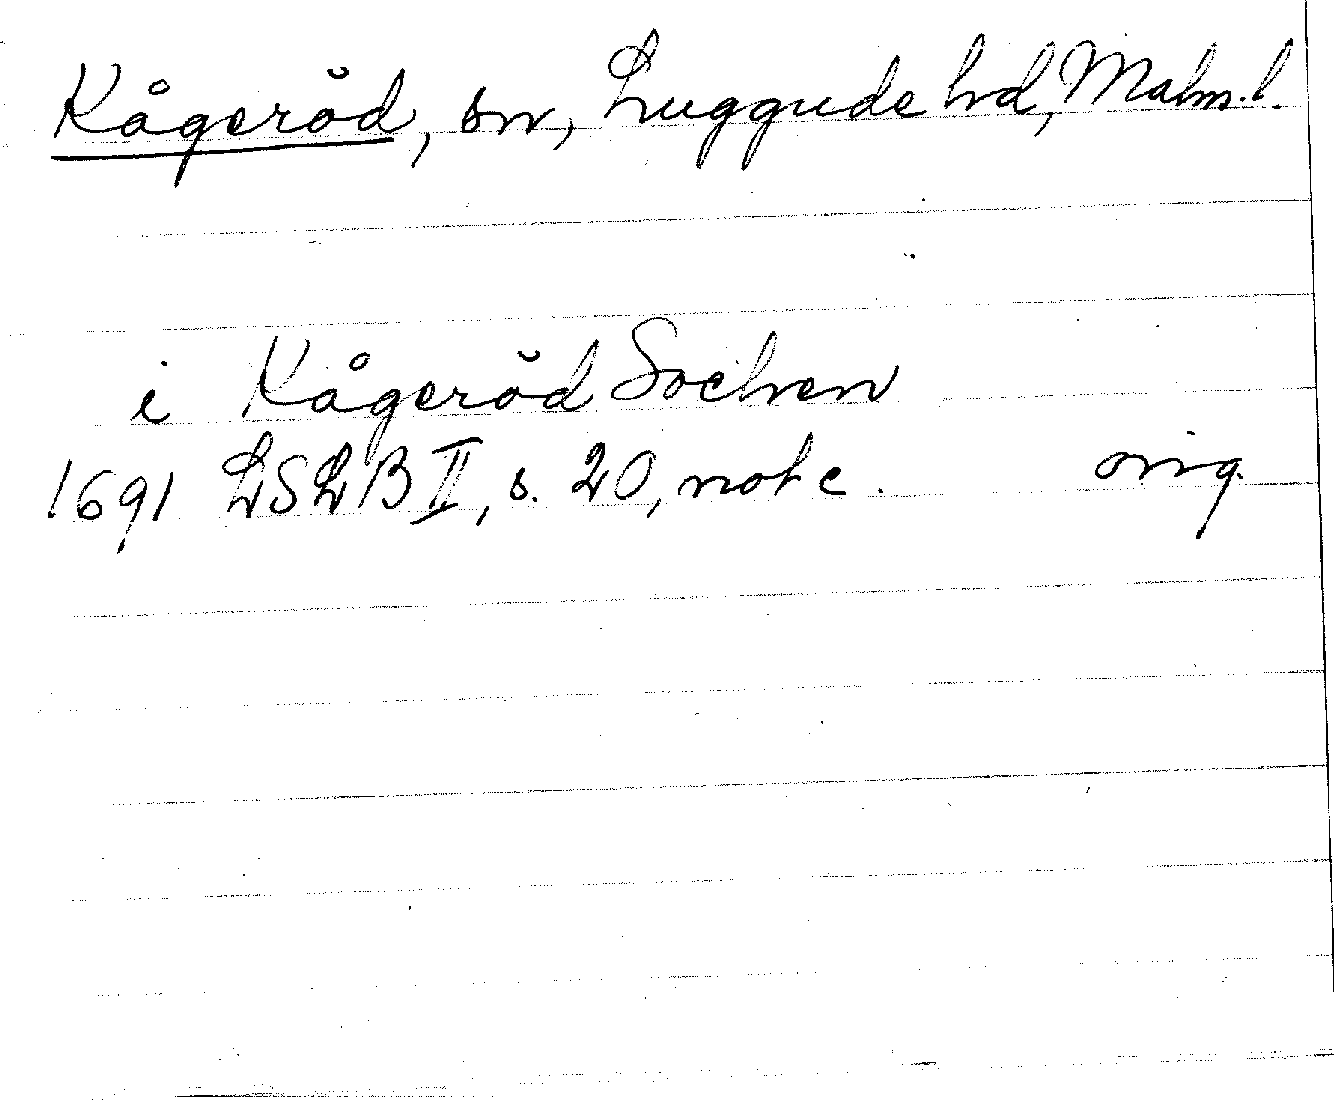 Kågeröd, sn, Luggude hd, Malm.l.
i Kågeröd Sochen
1691 LSLB II, s. 20, note. orig.